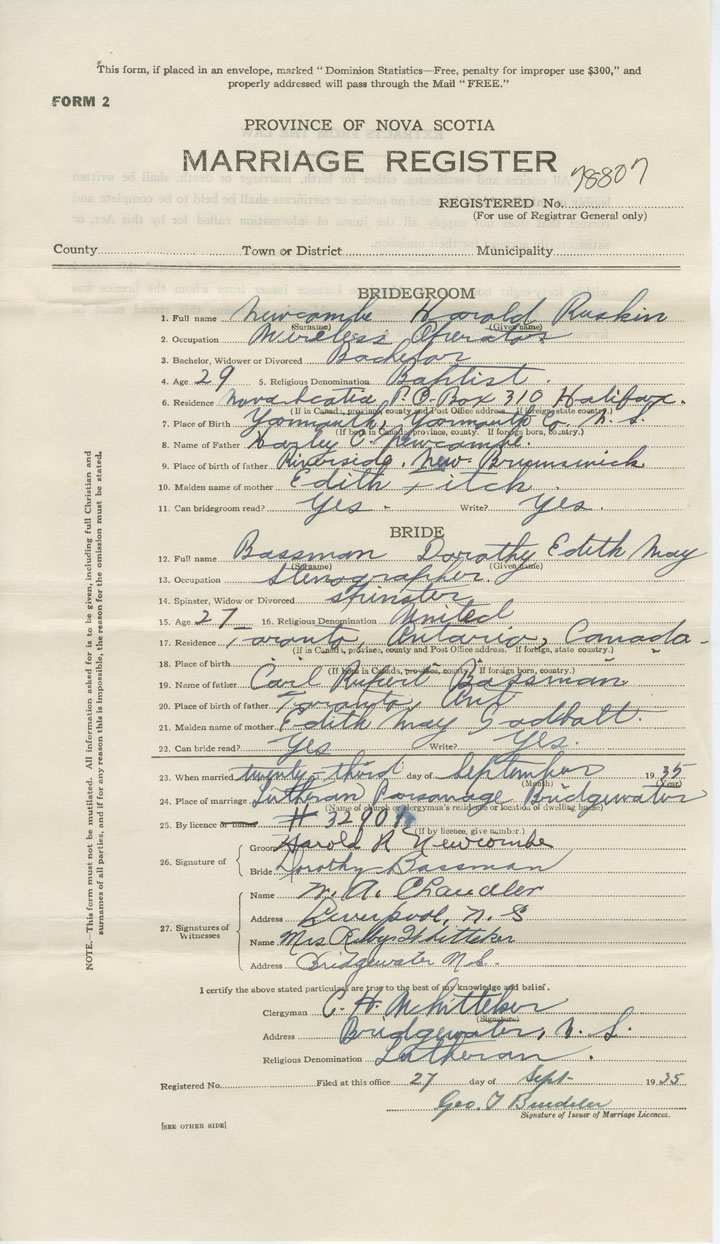 This form, if placed in an envelope, marked "Dominion Statistics—Free, penalty for improper use $300," and
properly addressed will pass through the Mail "FREE."
FORM 2
PROVINCE OF NOVA SCOTIA
MARRIAGE REGISTER
78807
REGISTERED No.
(For use of Registrar General only)
County Town or District Municipality
BRIDEGROOM
1. Full name Newcombe Harold Ruskin
(Surname) (Given name)
2. Occupation Wireless Operator
3. Bachelor, Widower or Divorced Bachelor
4. Age 29 5. Religious Denomination Baptist.
6. Residence Nova Scotia P.O. Box 310 Halifax.
(If in Canada, province, county and Post Office address. If foreign, state country.)
7. Place of Birth Yarmouth, Yarmouth Co. N.S.
(If born in Canada, province, county. If foreign born, country.)
8. Name of Father Hazley O. Newcombe.
9. Place of birth of father Riverside, New Brunswick
10. Maiden name of mother Edith Fitch
11. Can bridegroom read? Yes. Write? Yes.
BRIDE
12. Full name Bassman Dorothy Edith May
(Surname) (Given name)
13. Occupation Stenographer.
14. Spinster, Widow or Divorced Spinster
15. Age 27 16. Religious Denomination United
17. Residence Toronto, Ontario, Canada
(If in Canada, province, county and Post Office address. If foreign, state country.)
18. Place of birth " " "
(If born in Canada, province, county. If foreign born, country.)
19. Name of father Carl Rupert Bassman
20. Place of birth of father Toronto, Ont
21. Maiden name of mother Edith May
22. Can bride read? Yes Write? Yes.
23. When married twenty-third day of September 1935
(Month) (Year)
24. Place of marriage Lutheran Parsonage Bridgewater
(Name of church or clergyman's residence or location of dwelling house)
25. By licence or banns # 32909
(If by licence, give number.)
26. Signature of
Groom Harold R Newcombe
Bride Dorothy Bassman
27. Signatures of
Witnesses
Name W. A. Chandler
Address Liverpool, N.S
Name Mrs Whitteker
Address Bridgewater N.S.
I certify the above stated particulars are true to the best of my knowledge and belief.
Clergyman C. H. Whitteker
(Signature)
Address Bridgewater, N.S.
Religious Denomination Lutheran.
Registered No. Filed at this office 27 day of Sept 1935
Geo. T
Signature of Issuer of Marriage Licences.
[SEE OTHER SIDE]
NOTE.—This form must not be mutilated. All information asked for is to be given, including full Christian and
surnames of all parties, and if for any reason this is impossible, the reason for the omission must be stated.